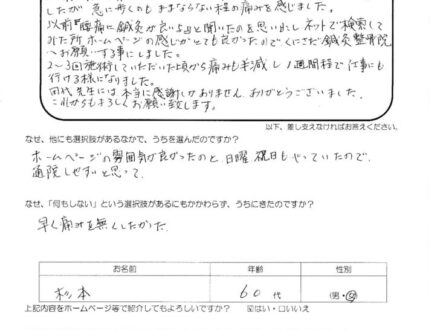 したが 急に歩くのもままならない程の痛みを感じました。
以前 腰痛に鍼灸が良いと聞いたのを思い出し ネットで検索して
みた所 ホームページの感じがとても良かったので くにさだ鍼灸整骨院
へお願いする事にしました。
2〜3回施術していただいた頃から痛みも半減し 1週間程で仕事にも
行ける様になりました。
田代先生には 本当に感謝しかありません。ありがとうございました。
これからもよろしくお願い致します。
以下、差し支えなければお答えください。
なぜ、他にも選択肢があるなかで、うちを選んだのですか？
ホームページの雰囲気が良かったのと、日曜、祝日もやっていたので、
通院しやすいと思って。
なぜ、「何もしない」という選択肢があるにもかかわらず、うちにきたのですか？
早く痛みを無くしたかった。
お名前 年齢 性別
杉本 60代 (男・女)
上記内容をホームページ等で紹介してもよろしいですか？ ☑はい・□いいえ